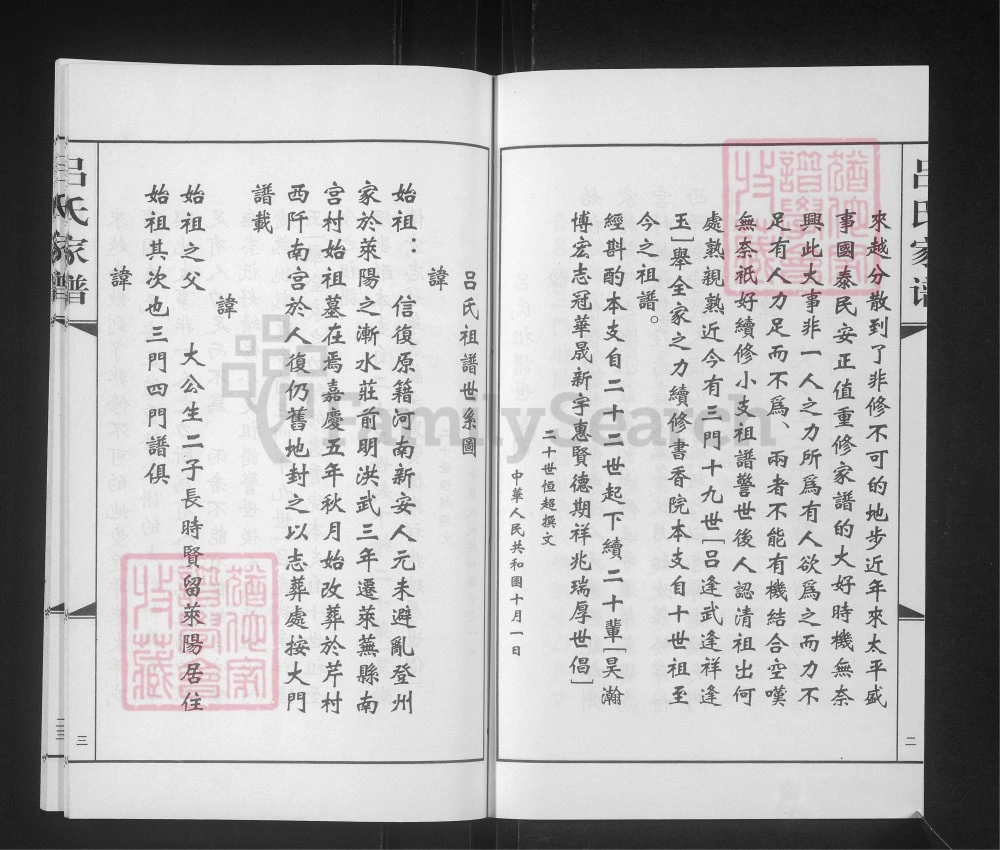 吕氏家譜
二
來越分散到了非修不可的地步近年來太平盛
事國泰民安正值重修家譜的大好時機無奈
興此大事非一人之力所爲有人欲爲之而力不
足有人力足而不爲、兩者不能有機結合空嘆
無奈祇好續修小支祖譜警世後人認清祖出何
處熟親熟近今有三門十九世[呂逢武逢祥逢
玉]舉全家之力續修書香院本支自十世祖至
今之祖譜。
經斟酌本支自二十二世起下續二十輩[昊瀚
博宏志冠華晟新宇惠賢德期祥兆瑞厚世倡]
二十世恒超撰文
中華人民共和國十月一日
呂氏祖譜世系圖
諱
始祖：　信復原籍河南新安人元末避亂登州
家於萊陽之漸水莊前明洪武三年遷萊蕪縣南
宮村始祖墓在焉嘉慶五年秋月始改葬於芹村
西阡南宮於人復仍舊地封之以志葬處按大門
譜載
諱
始祖之父　大公生二子長時賢留萊陽居住
始祖其次也三門四門譜俱
諱
吕氏家譜
三
FamilySearch